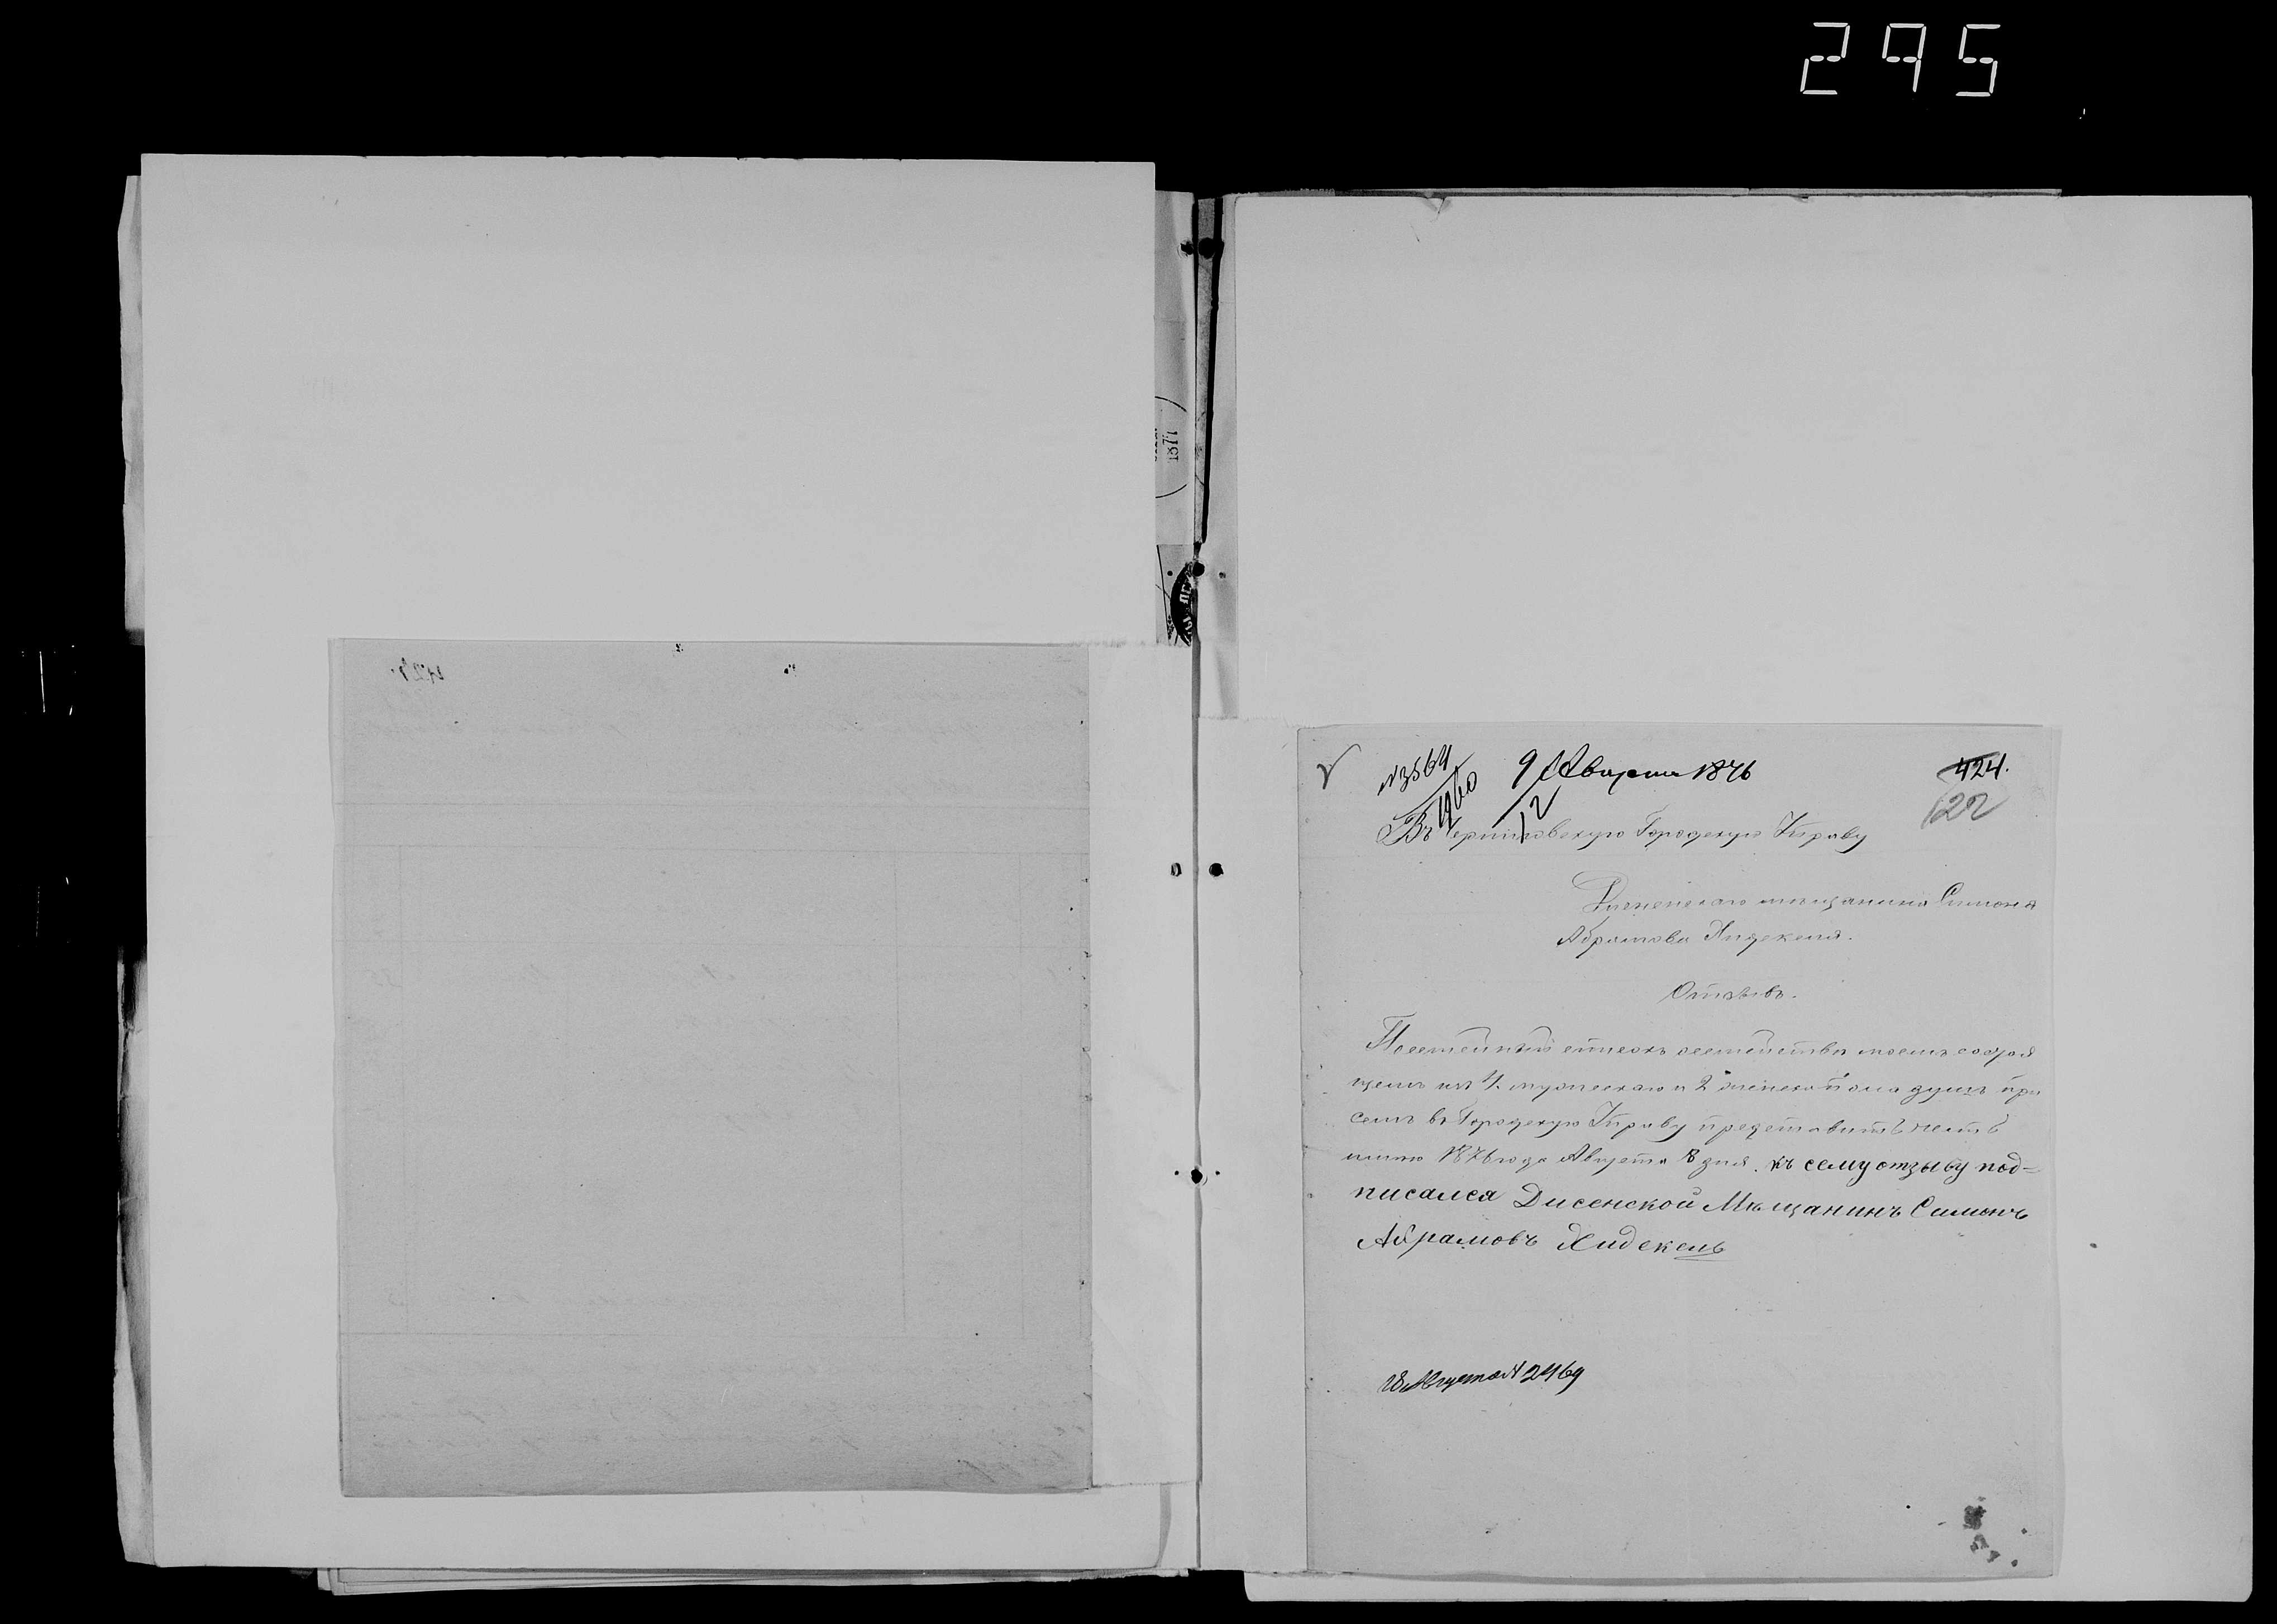 295
1877
№ 3564
1960
9 Августа 1876
12
424.
122
Въ Черниговскую Городскую Управу
Дисненскаго мѣщанина Симона
Абрамова Хидекеля.
Отзывъ.
Посемейный списокъ семейства моемъ состоя
щемъ изъ 4. мужескаго и 2 женска пола душъ при
семъ въ Городскую Управу представить честь
имѣю 1876 года Августа 8 дня. къ сему отзыву под=
писался Дисенской Мѣщанинъ Симонъ
Абрамовъ Хидекель
18 Августа № 2469